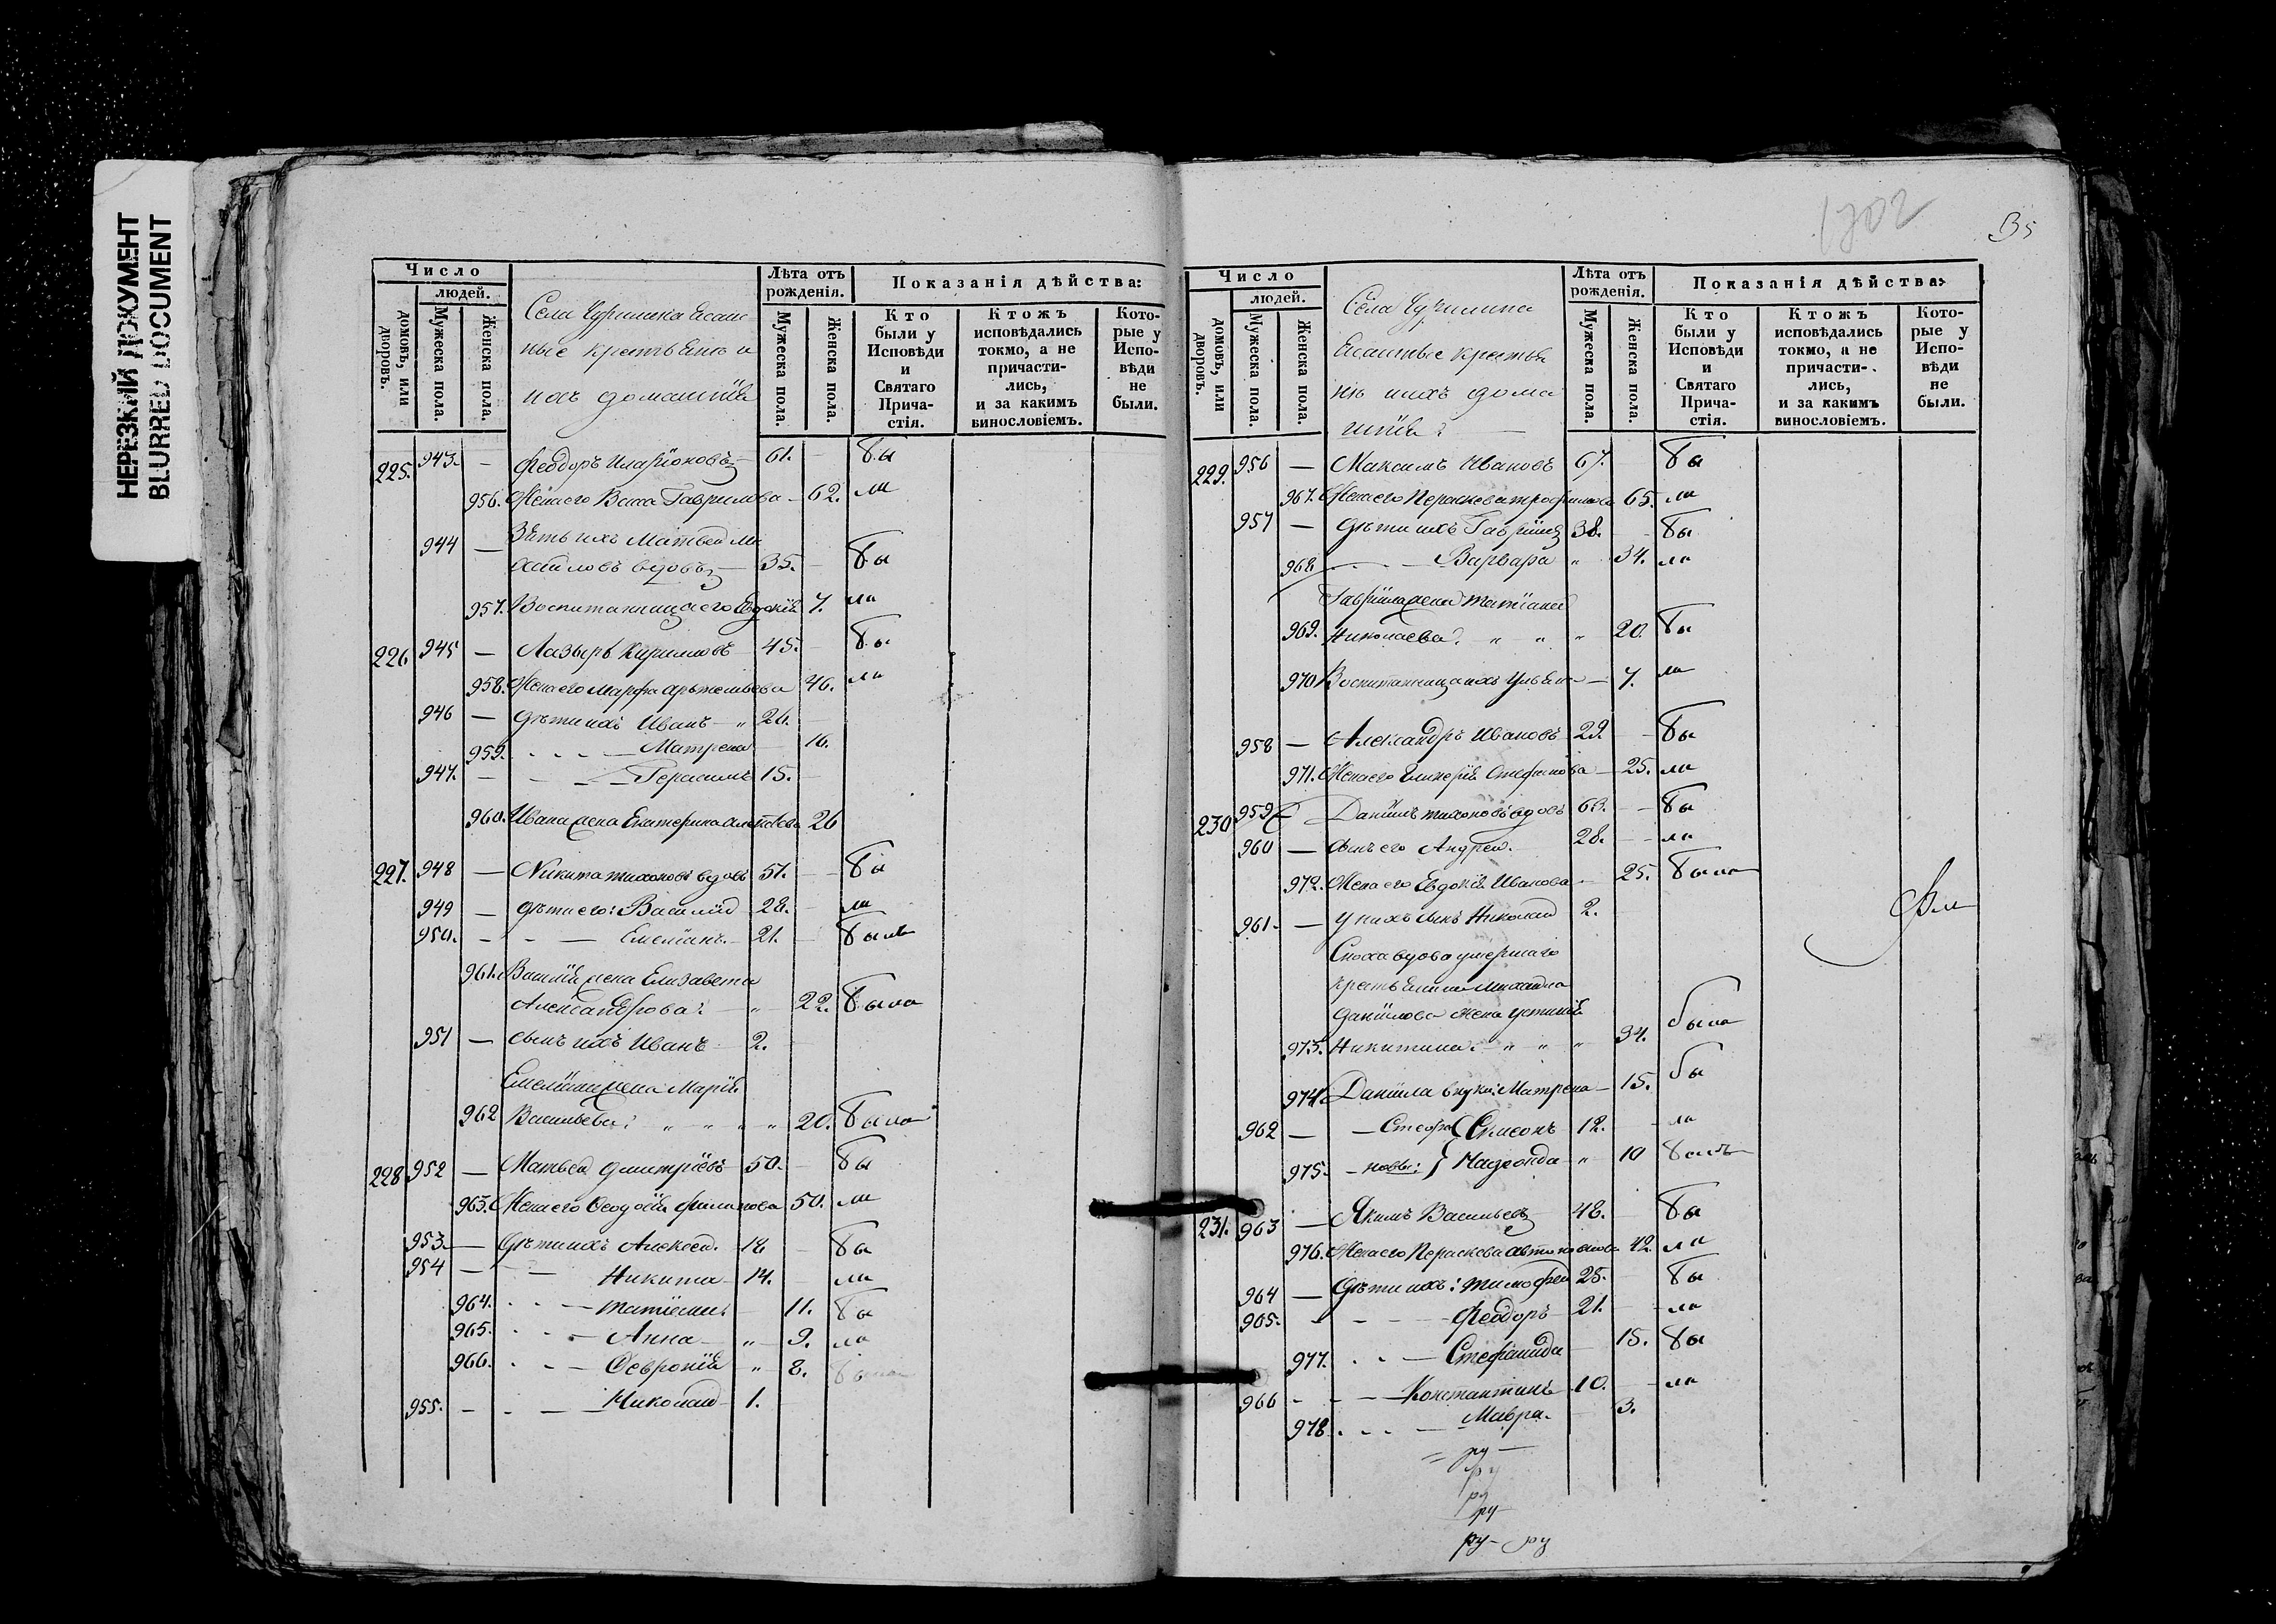 НЕРЕЗКИЙ ДОКУМЕНТ
BLURRED DOCUMENT
Число
людей.
домовъ, или дворовъ.
Мужеска пола.
Женска пола.
нье крестьяне и
ихъ домашнія
Лѣта отъ рожденія.
Мужеска пола.
Женска пола.
Показанія дѣйства:
Кто были у Исповѣди и Святаго Прича-стія.
Ктожъ исповѣдались токмо, а не причасти-лись, и за какимъ винословіемъ.
Кото-рые у Испо-вѣди не были.
225. 943. — Ѳеодоръ Иларіоновъ 61. — бы
956. Жена его Васса Гаврилова — 62. ли
944 — Зять ихъ Матвей Ми
хайловъ вдовъ — 35. — бы
957. Воспитанница его Евдокія 7. ли
226 945 — Лазырь Кириловъ 45. — бы
958. Жена его Марфа Артемьева 46. ли
946 — Дѣти ихъ Иванъ — „ 26. —
959. — Матрена — 16.
947. — Герасимъ 15. —
960. Ивана жена Екатерина 26
227. 948 — Никита Тихоновъ вдовъ 51. — бы
949 — Дѣти его: Василій — 28. — ли
950. — — Емеліянъ. — 21. — былъ
961. Василія жена Елизавета
Александрова: — „ 22. была
951 — Сынъ ихъ Иванъ 2.
Емеліяна жена Марія
962 Васильева: „ „ „ „ 20. была
228 952 — Матвей Димитріевъ 50. — бы
963. Жена его Ѳеодосія Филипова 50. ли
953. — Дѣти ихъ Алексей. 18 — бы
954 — — Никита — 14. — ли
964. — Татіана — 11. бы
965. — Анна — „ 9. ли
966. — Ѳевронія „ 8. была
955. — — Николай — 1.
1702
35
Число
людей.
домовъ, или дворовъ.
Мужеска пола.
Женска пола.
Села
крестья
не ихъ дома
шнія:
Лѣта отъ рожденія.
Мужеска пола.
Женска пола.
Показанія дѣйства:
Кто были у Исповѣди и Святаго Прича-стія.
Ктожъ исповѣдались токмо, а не причасти-лись, и за какимъ винословіемъ.
Кото-рые у Испо-вѣди не были.
229. 956 — Максимъ Ивановъ 67. — бы
967. Жена его Перасковя Трофимова 65. ли
957 — Дѣти ихъ Гавріилъ 38. — бы
968 — Варвара „ 34. ли
Гавріила жена Татіана
969. Николаева: „ „ „ 20. бы
970 Воспитанница ихъ Ульяна — 7. ли
958 — Александръ Ивановъ 29. — бы
971. Жена его Гликерія Стефанова — 25. ли
230 959 Даніилъ Тихоновъ вдовъ 63. — бы
960 — Сынъ его Андрей. 28. — ли
972. Жена его Евдокія Иванова — 25. была
961. — У нихъ сынъ Николай 2.
Сноха вдова умершаго
крестьянина Михаила
Данилова жена Устинія
973. Никитина: „ „ „ 34. была
974 Даніила внуки: Матрена — 15. бы
962 — — Симеонъ 12. — ли
975. — „ 10
231. 963 — Якимъ Васильевъ 48. — бы
976. Жена его Перасковя 42. ли
964 — Дѣти ихъ: Тимофей 25. — бы
965. — — Ѳеодоръ — 21. — ли
977. — Стефанида — 15. бы
966 — — Константинъ 10. — ли
978. — Мавра. — 3.
ру —
ру
ру
ру
ру — ру